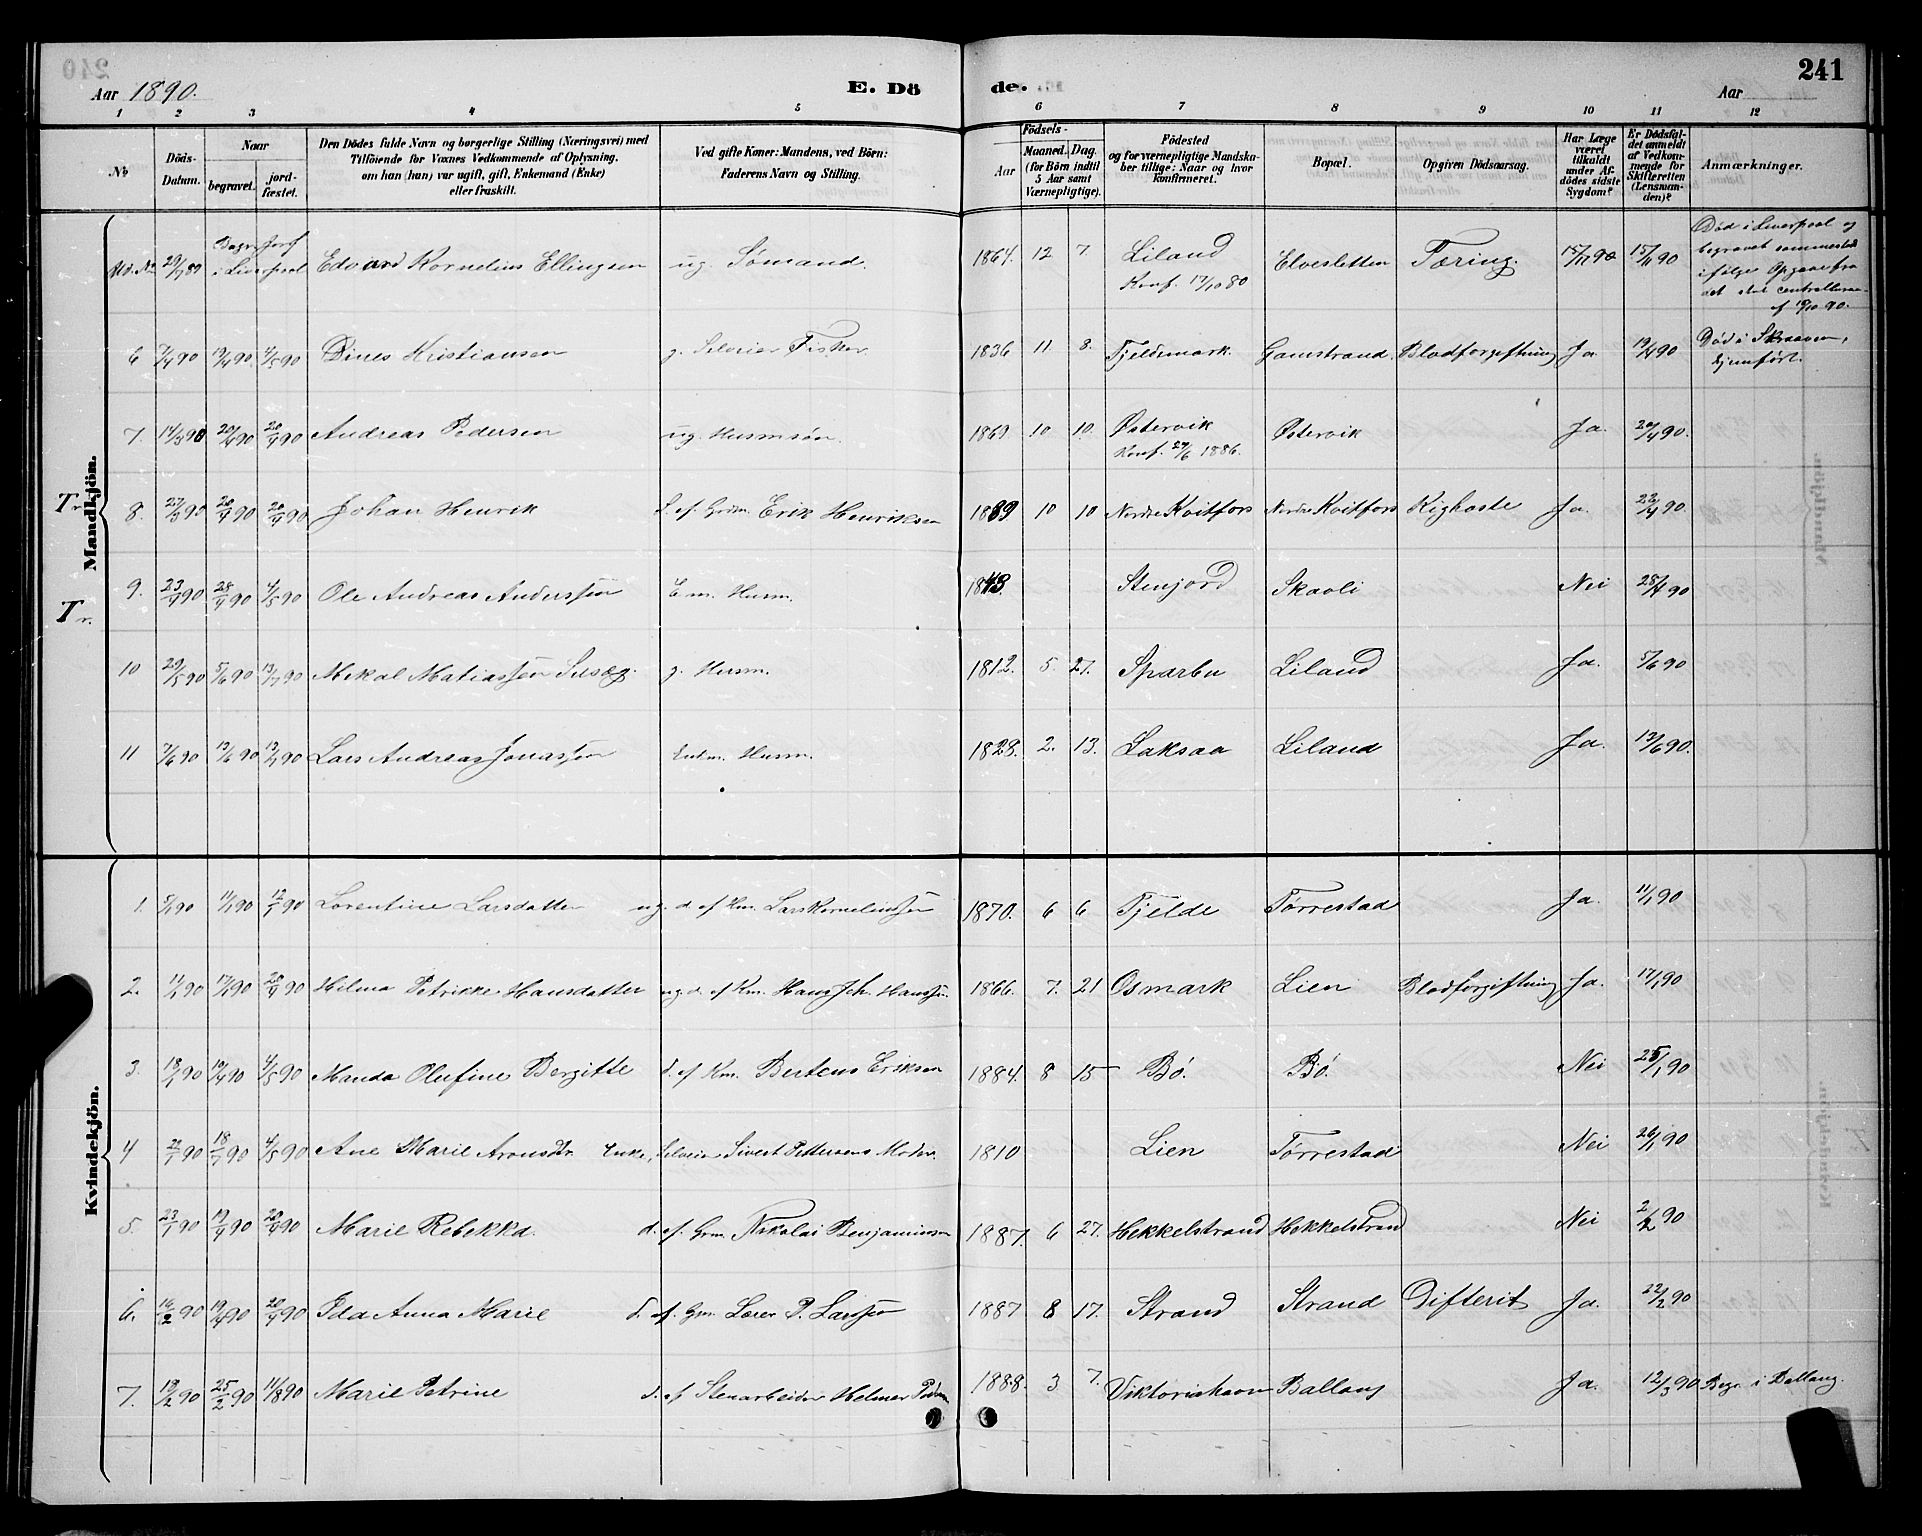 240
Aar 1890.
E. Dö
de.
241
Aar
1 2 3 4 5 6 7 8 9 10 11 12
No
Döds-Datum.
Naar
begravet.
jord-fæstet.
Den Dödes fulde Navn og borgerlige Stilling (Næringsvei) med
Tilföiende for Voxnes Vedkommende af Oplysning,
om han (hun) var ugift, gift, Enkemand (Enke)
eller fraskilt.
Ved gifte Koner: Mandens, ved Börn:
Faderens Navn og Stilling.
Födsels-
Aar
Maaned. Dag.
(for Börn indtil
5 Aar samt
Værnepligtige).
Födested
og for værnepligtige Mandska-
ber tillige: Naar og hvor
konfirmeret.
Bopæl.
Opgiven Dödsaarsag.
Har Læge
været
tilkaldt
under Af-
dödes sidste
Sygdom?
Er Dödsfal-
det anmeldt
af Vedkom-
mende for
Skifteretten
(Lensman-
den)?
Anmærkninger.
Mandkjön.
Ud. No 29/9 89 Begr. Jordf. i Liverpool Edvard Kornelius Ellingsen ug. Sømand. 1864. 12 7 Liland Konf. 17/10 80 Elvesletten Tæring. 15/11 90 15/11 90 Død i Liverpool og
begravet sammesteds
ifølge Opgave fra
det stat. centralbureau
af 19/10 90.
6 7/4 90 19/4 90 4/5 90 Dines Kristiansen g. Seleier Fisker 1836 11. 8. Fjeldemark. Gamstrand. Blodforgiftning Ja. 19/4 90 Død i Skraaven,
hjemført.
7. 14/3 90 20/4 90 20/4 90 Andreas Pedersen ug. Husmsøn. 1869. 10. 10. Østervik Konf. 27/6 1886. Østervik Ja. 20/4 90.
Tr. 8. 27/3 90 20/4 90 20/4 90 Johan Henrik S. af. Grdm. Erik Henriksen 1889 10 10 Nordre Kvitfors Nordre Kvitfors Kighoste Ja. 22/4 90
Tr. 9. 23/4 90 28/4 90 4/5 90 Ole Andreas Anderssen Em. Husm. 1843. Stenjord Skavli Nei 28/4 90
10 29/5 90 5/6 90 13/7 90 Mikal Matiassen g. Husm. 1812. 5. 27. Sparbu Liland Ja. 5/6 90
11 7/6 90 13/6 90 13/7 90 Lars Andreas Jonassen Enkm. Husm. 1828. 2. 13. Laksaa Liland Ja. 13/6 90.
Kvindekjön.
1. 5/1 90 11/1 90 12/1 90 Lorentine Larsdatter ug. d. af Km. Lars Kornelius­sen 1870. 6 6 Fjelde Tørrestad Ja. 11/1 90
2. 11/1 90 17/1 90 28/4 90 Hilma Petrikke Hansdatter ug. d. af Km. Hans Joh. Hanssen. 1866. 7. 21 Osmark Lien Blodforgiftning Ja. 17/1 90
3. 13/1 90 19/4 90 4/5 90 Manda Olufine Bergitte d. af Km. Bertens Eriksen 1884. 8 15 Bø. Bø. Nei 25/1 90
4 22/1 90 18/4 90 4/5 90 Ane Marie Aronsdtr. Enke, Seleier Sivert Pettersens Moder. 1810 Lien Tørrestad Nei 26/1 90
5. 23/1 90 19/4 90 20/4 90 Marie Rebekka. d. af. Grm. Nikolai Benjaminsen 1887. 6 27. Hekkelstrand Hekkelstrand Nei 2/2 90
6. 16/2 90 19/4 90 20/4 90 Ida Anna Marie d. af. Grm. Søren P. Larssen 1887 8 17. Strand Strand Difterit Ja. 22/2 90
7. 18/2 90 25/2 90 11/8 90 Marie Petrine d. af Stenarbeider Helmer Peders. 1888. 3 7. Viktoriahavn Ballang Ja. 12/3 90 Begr. i Ballang.